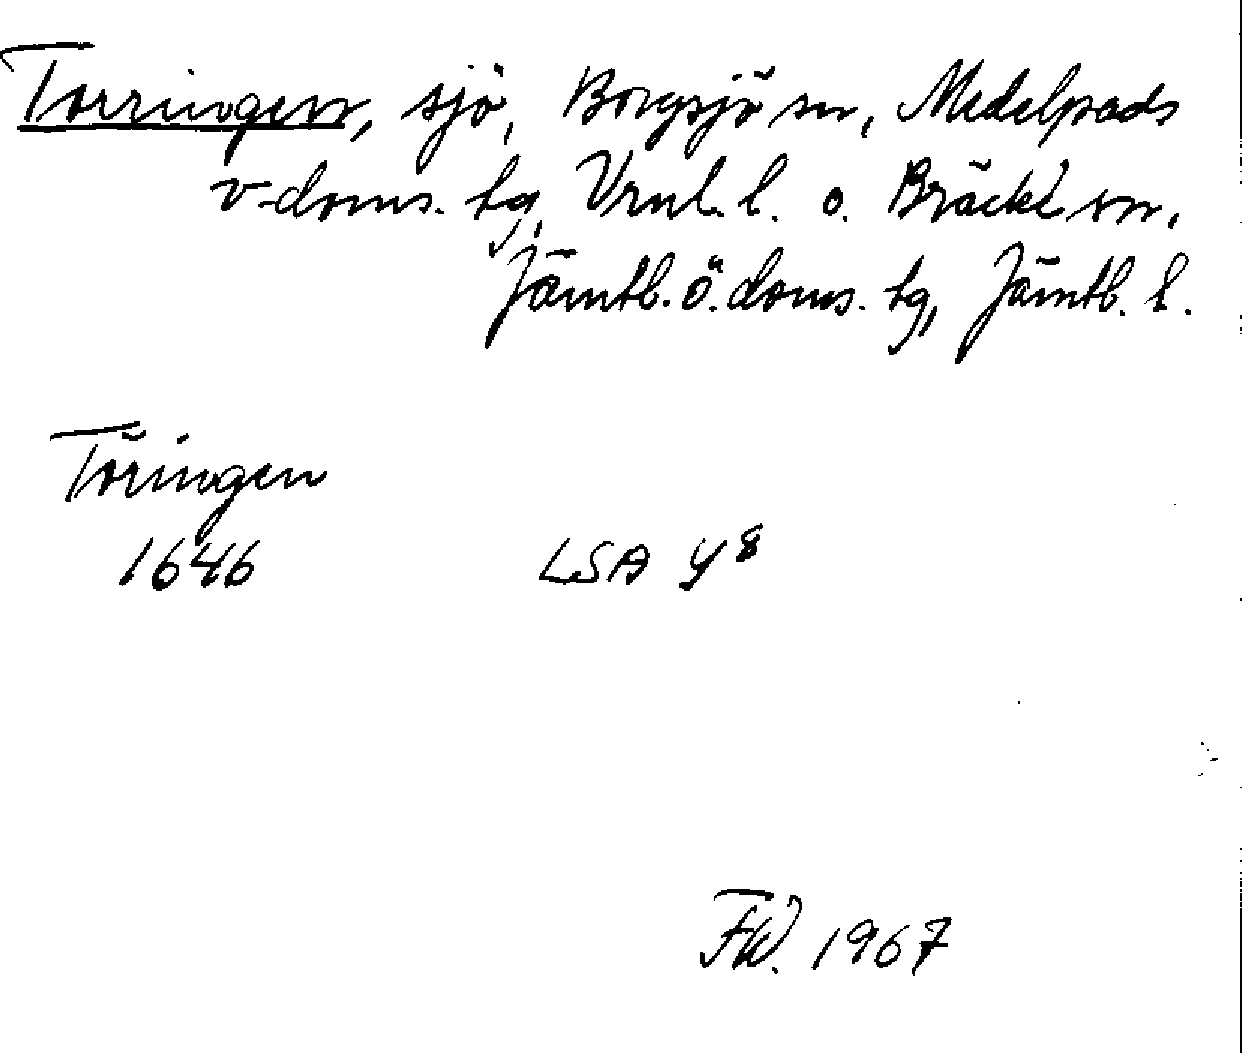 Torringen, sjö, Borgsjö sn, Medelpads
v-doms. tg, Vrnl. l. o. Bräcke sn,
Jämtl. ö. doms. tg, Jämtl. l.
Töringen
1646 LSA Y8
FW. 1967